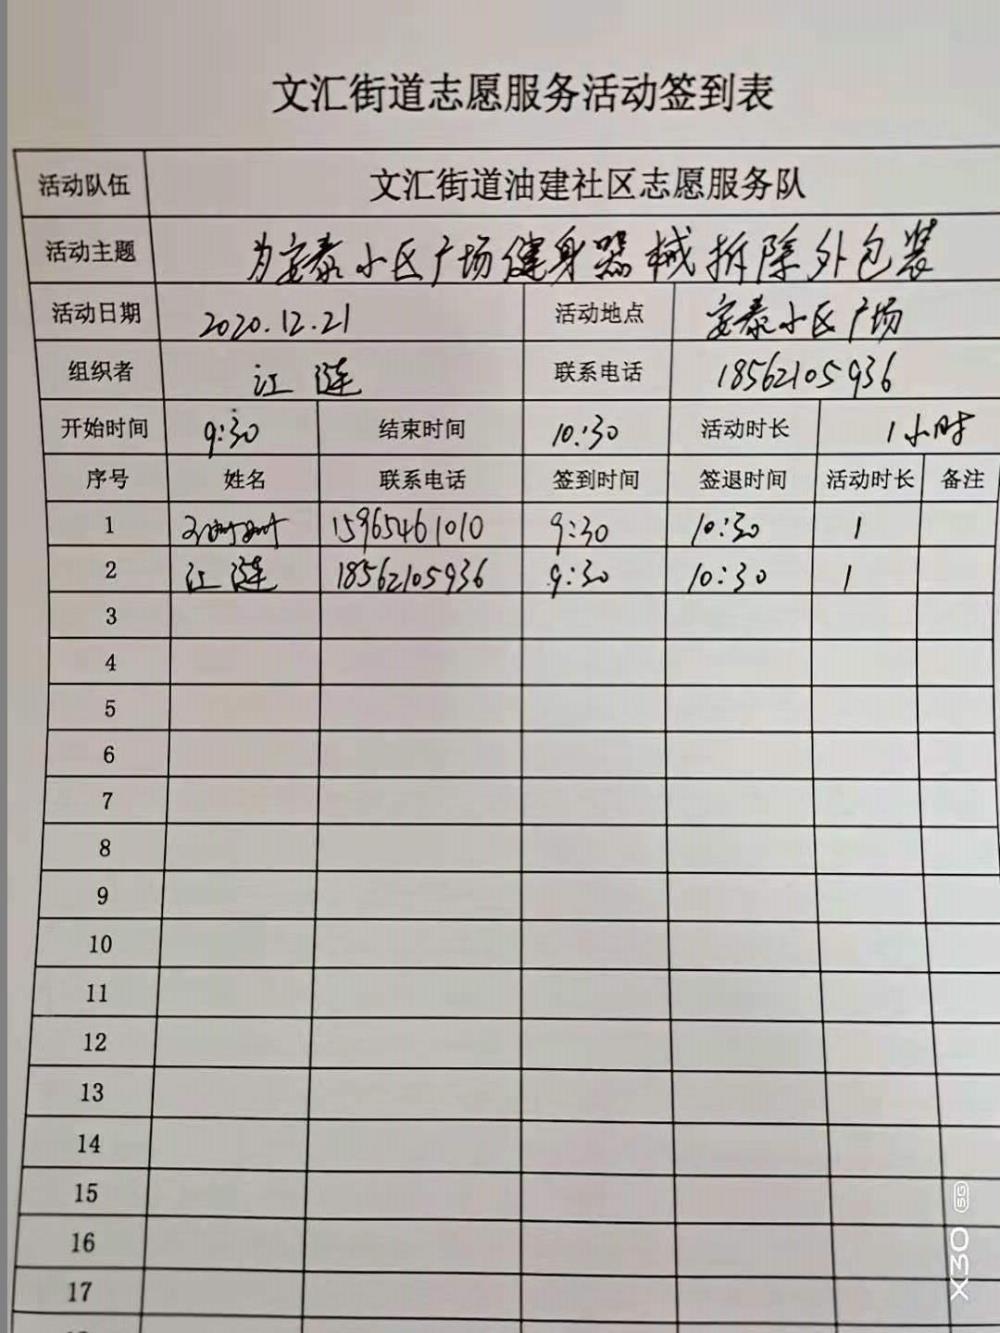 文汇街道志愿服务活动签到表
活动队伍 文汇街道油建社区志愿服务队
活动主题 为安泰小区广场健身器械拆除外包装
活动日期 2020.12.21 活动地点 安泰小区广场
组织者 江涟 联系电话 18562105936
开始时间 9:30 结束时间 10:30 活动时长 1小时
序号 姓名 联系电话 签到时间 签退时间 活动时长 备注
1 15965461010 9:30 10:30 1
2 江涟 18562105936 9:30 10:30 1
3
4
5
6
7
8
9
10
11
12
13
14
15
16
17
X30 5G